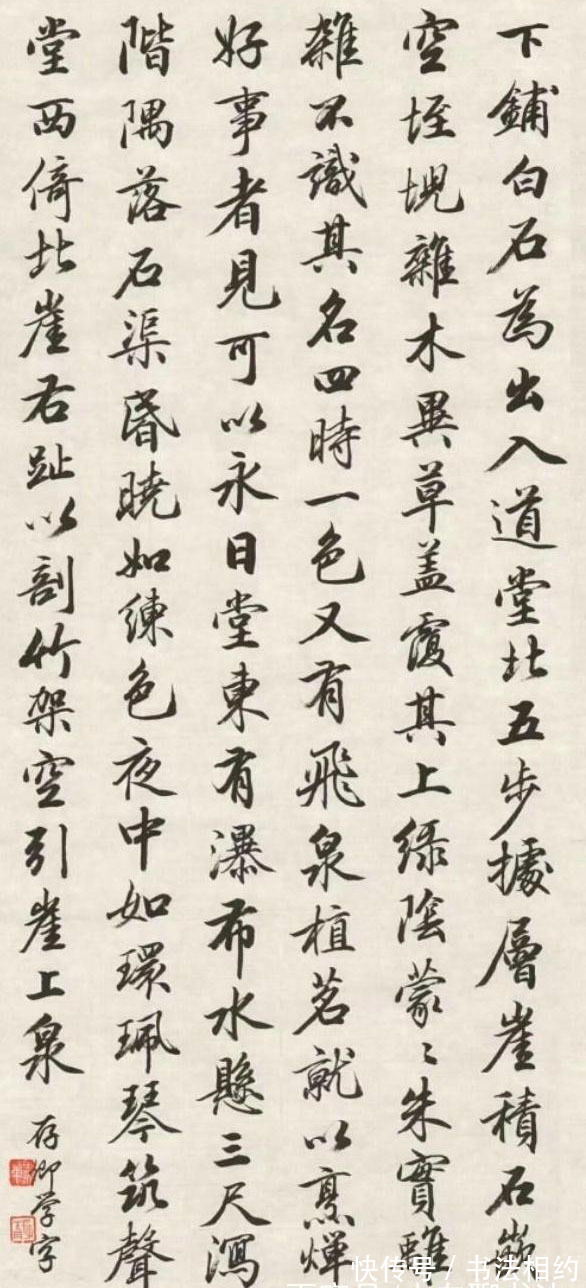 下鋪白石為出入道堂北五步據層崖積石嵌
空垤堄雜木異草盖覆其上綠陰蒙〻朱實離
離不識其名四時一色又有飛泉植茗就以烹燀
好事者見可以永日堂東有瀑布水懸三尺瀉
階隅落石渠昏曉如練色夜中如環珮琴筑聲
堂西倚北崖右趾以剖竹架空引崖上泉
存卿学字
快传号 / 书法相约